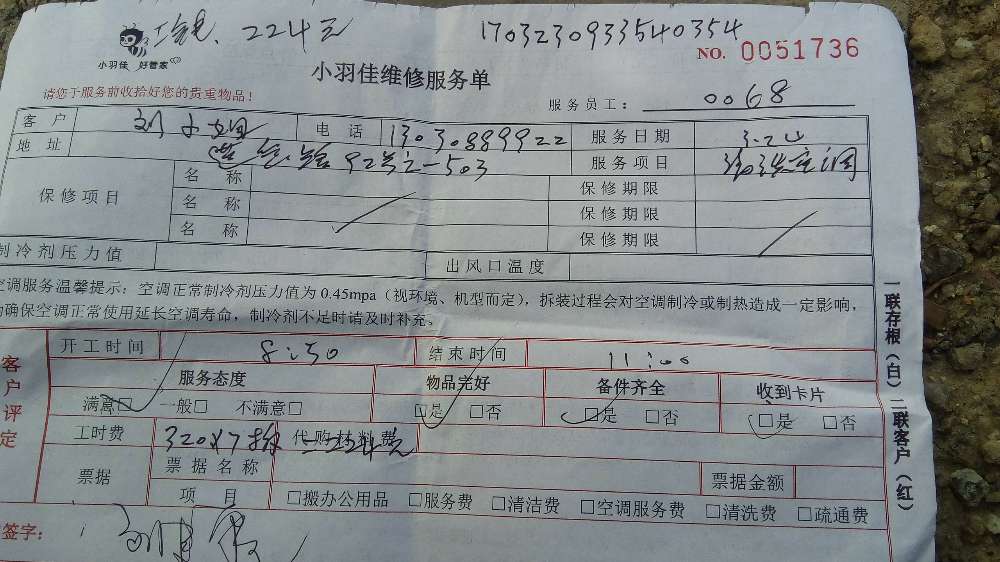 224元 1703230933540354
小羽佳 好管家
NO. 0051736
小羽佳维修服务单
请您于服务前收拾好您的贵重物品！
服务员工： 0068
客户 刘小姐 电话 13030889922 服务日期
地址 92号之一503 服务项目 清洗空调
保修项目 名称 保修期限
名称 保修期限
名称 保修期限
制冷剂压力值 出风口温度
空调服务温馨提示：空调正常制冷剂压力值为0.45mpa（视环境、机型而定），拆装过程会对空调制冷或制热造成一定影响，
为确保空调正常使用延长空调寿命，制冷剂不足时请及时补充。
客户评定
开工时间 8:50 结束时间 11:00
服务态度 物品完好 备件齐全 收到卡片
满意□ 一般□ 不满意□ □是 □否 □是 □否 □是 □否
工时费 320×7折 代购材料费
票据 票据名称 票据金额
项目 □搬办公用品 □服务费 □清洁费 □空调服务费 □清洗费 □疏通费
签字：
一联存根（白） 二联客户（红）